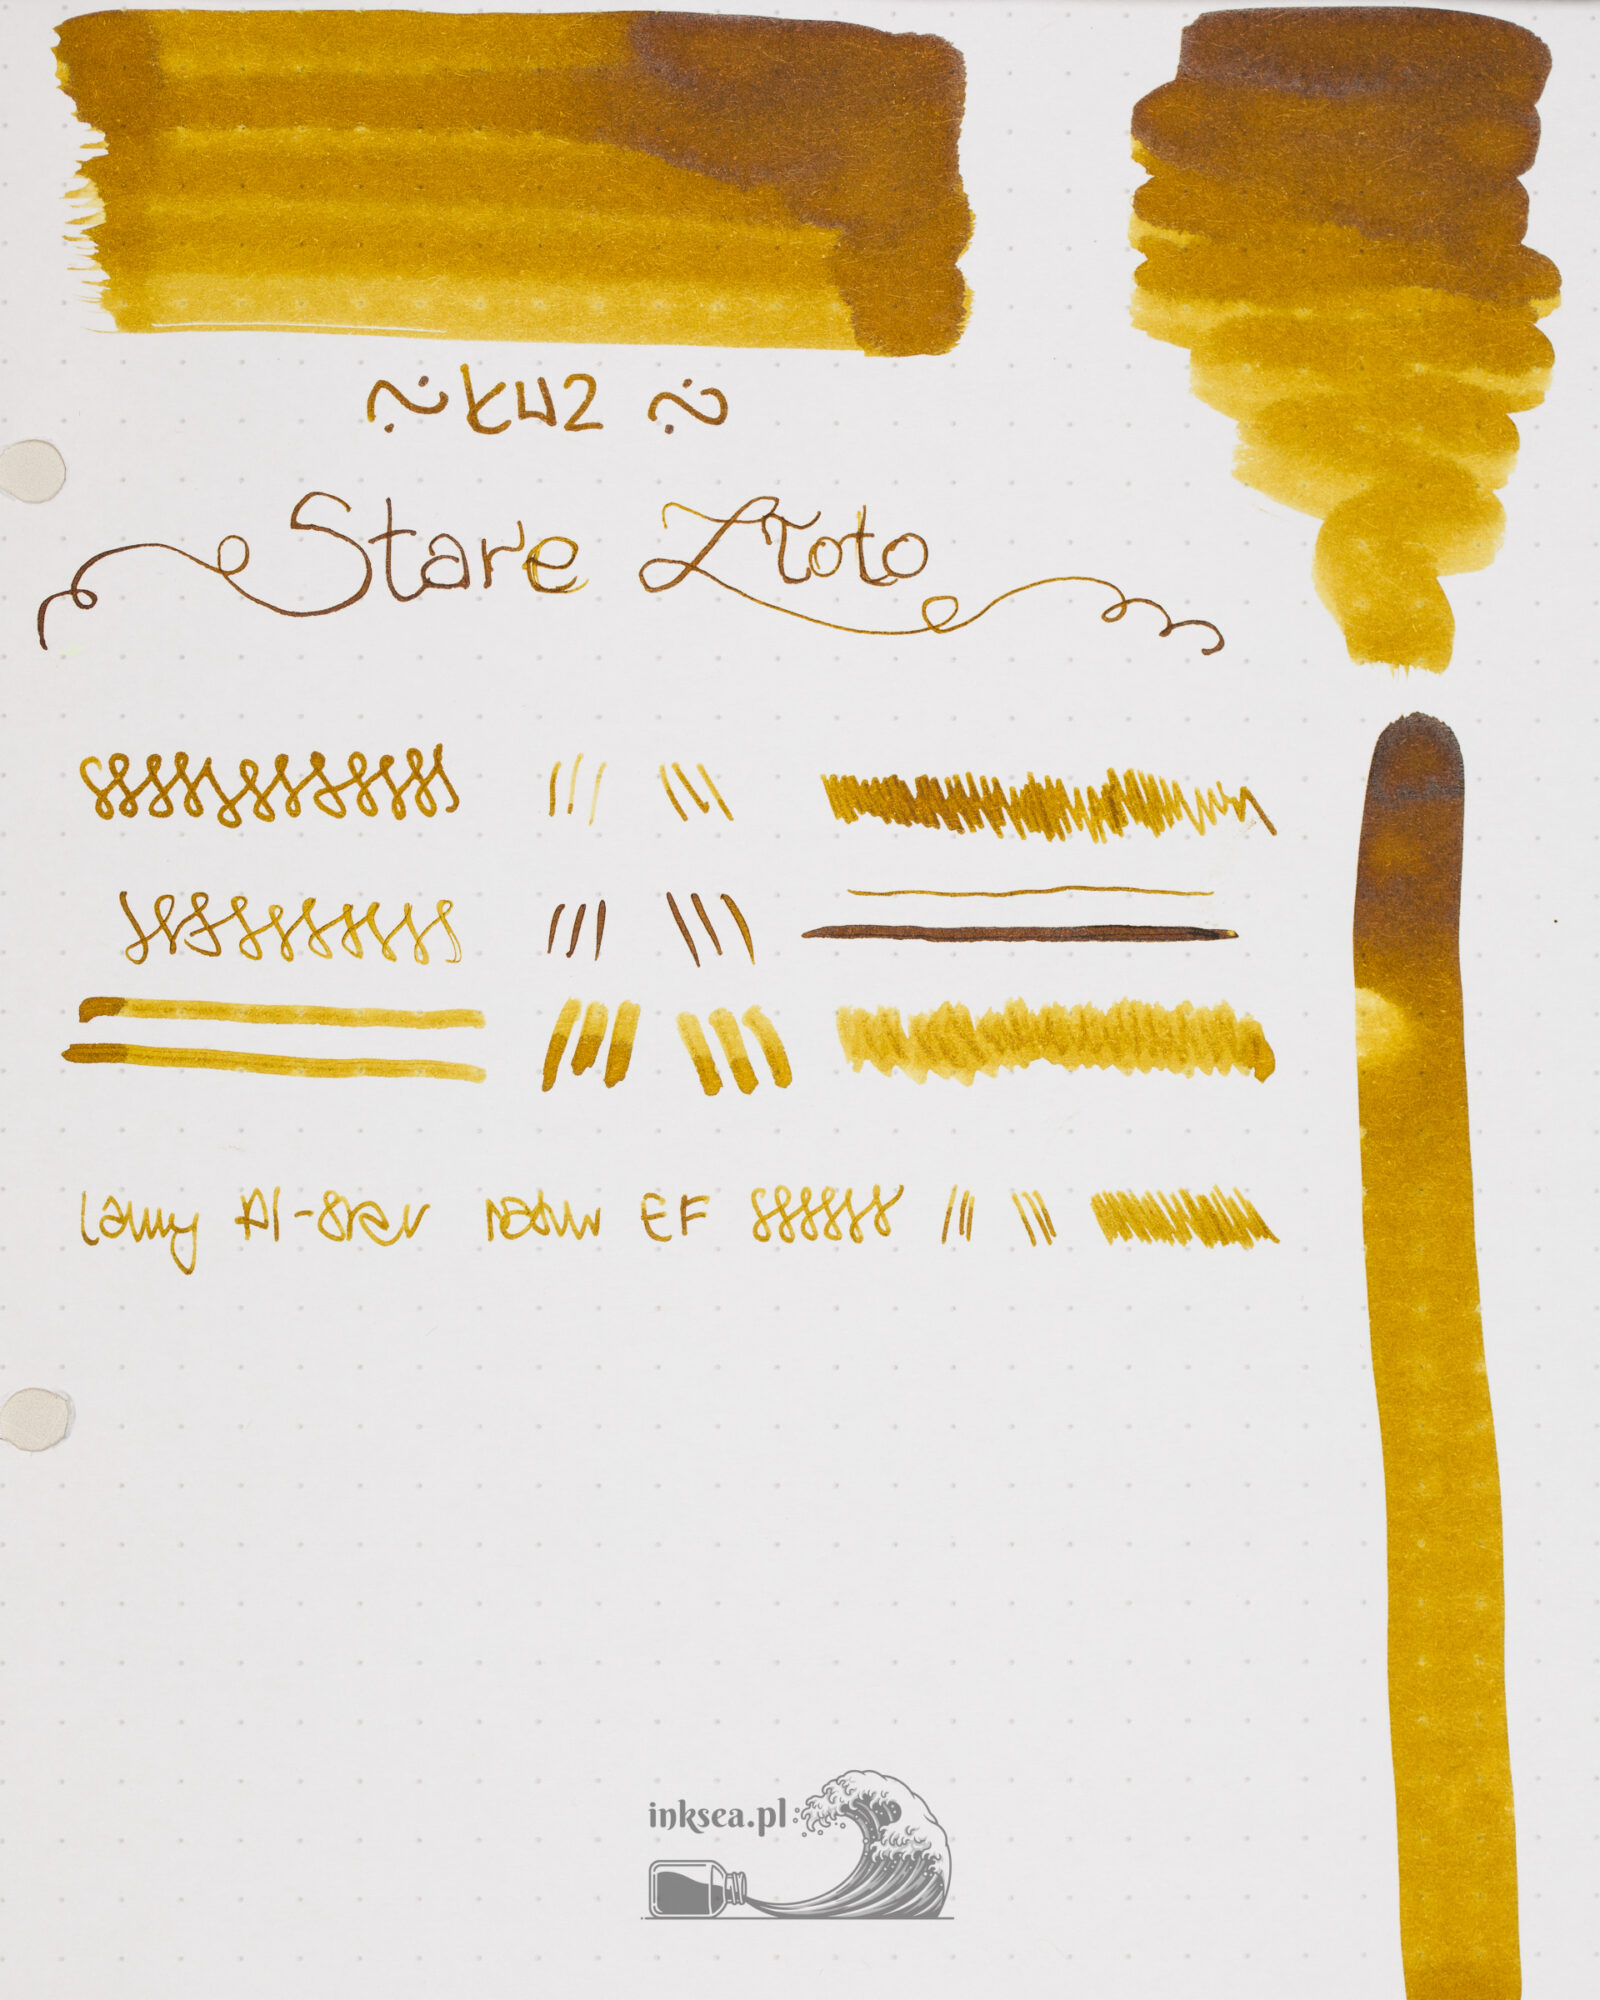 KWZ
Stare Złoto
Lamy Al-Star EF
inksea.pl